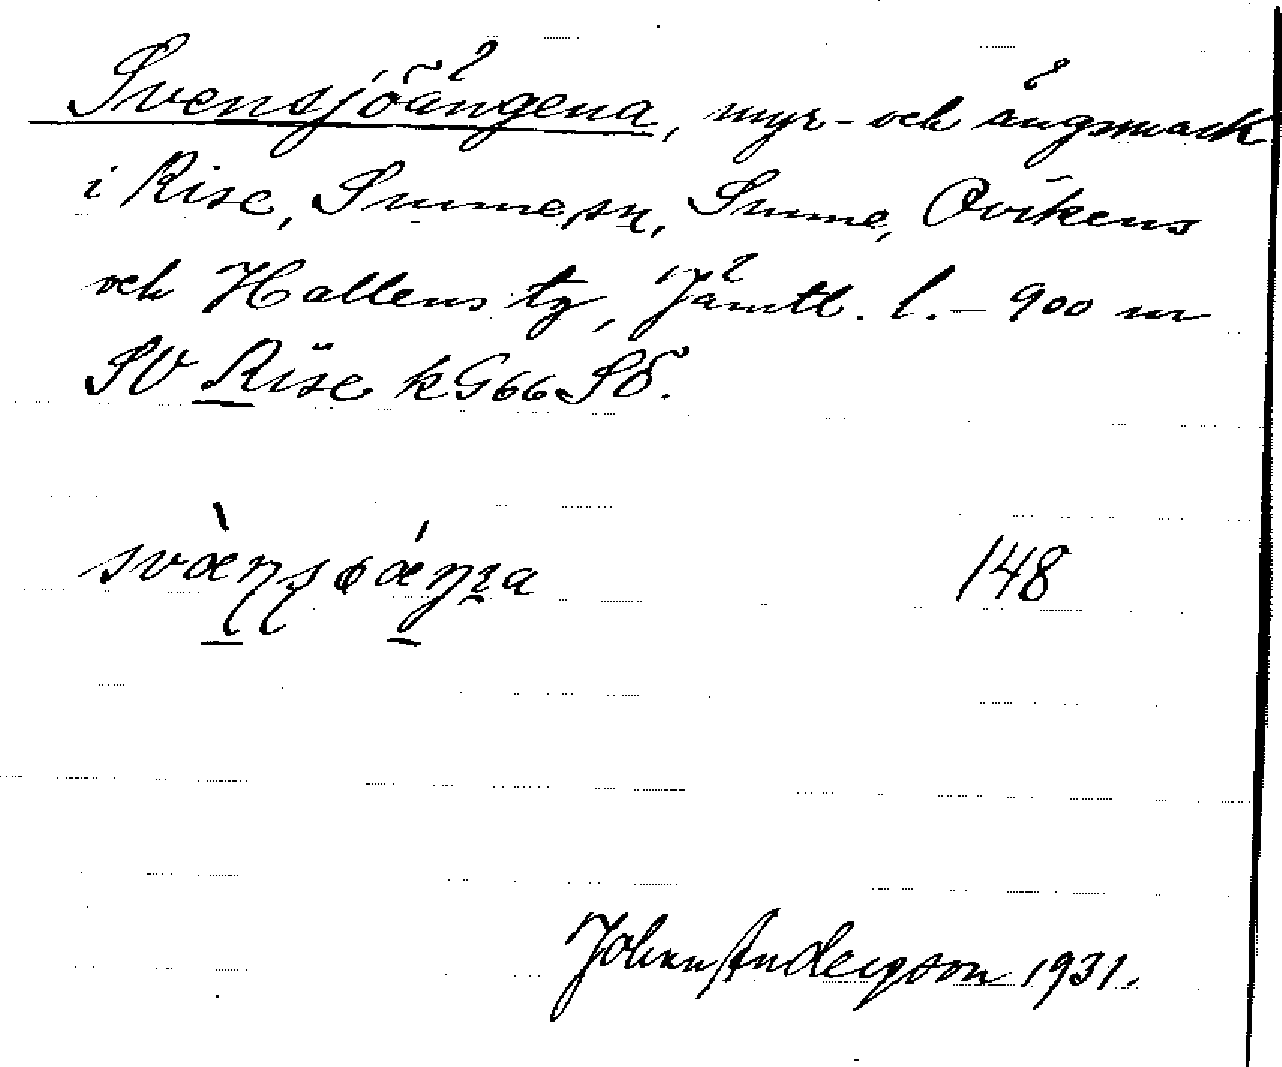 Svensjöängena, myr- och ängsmark
i Rise, Sunne sn, Sunne, Ovikens
och Hallens tg, Jämtl. l. - 900 m
SV Rise kG66SÖ.
148
Johan Anderson 1931.